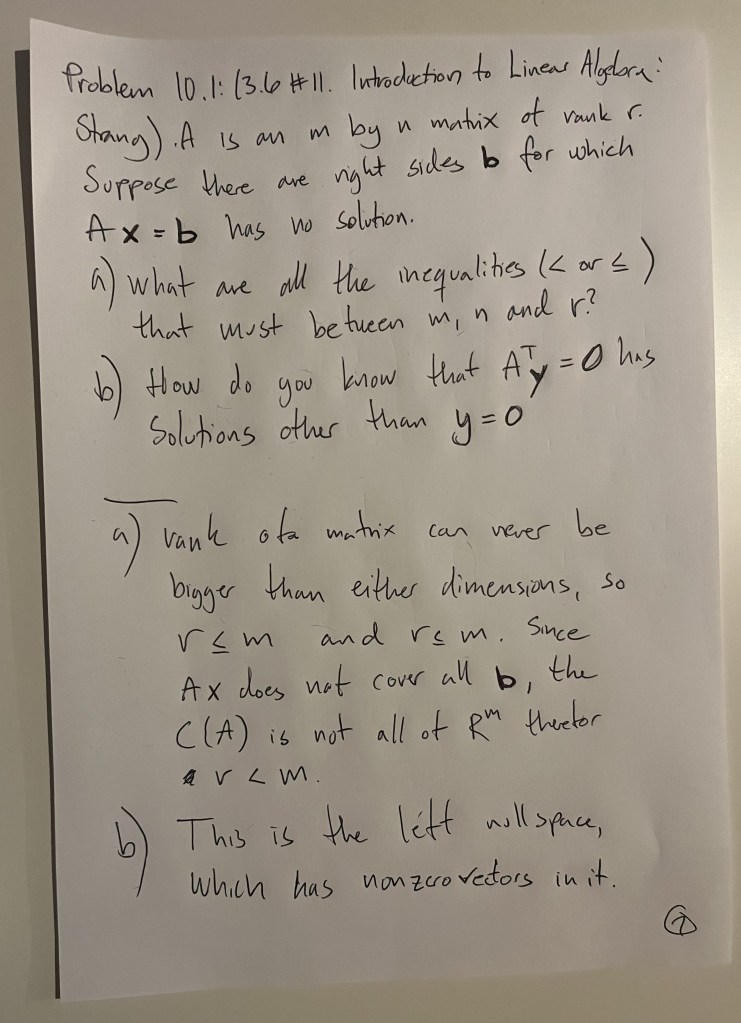 Problem 10.1: (3.6 #11. Introduction to Linear Algebra:
Strang). A is an m by n matrix of rank r.
Suppose there are right sides b for which
Ax = b has no solution.
a) What are all the inequalities (< or ≤)
that must between m, n and r?
b) How do you know that Aᵀy = 0 has
Solutions other than y = 0
a) rank of a matrix can never be
bigger than either dimensions, so
r ≤ m and r ≤ m. Since
Ax does not cover all b, the
C(A) is not all of Rᵐ therefor
r < m.
b) This is the left nullspace,
Which has nonzero vectors in it.
7